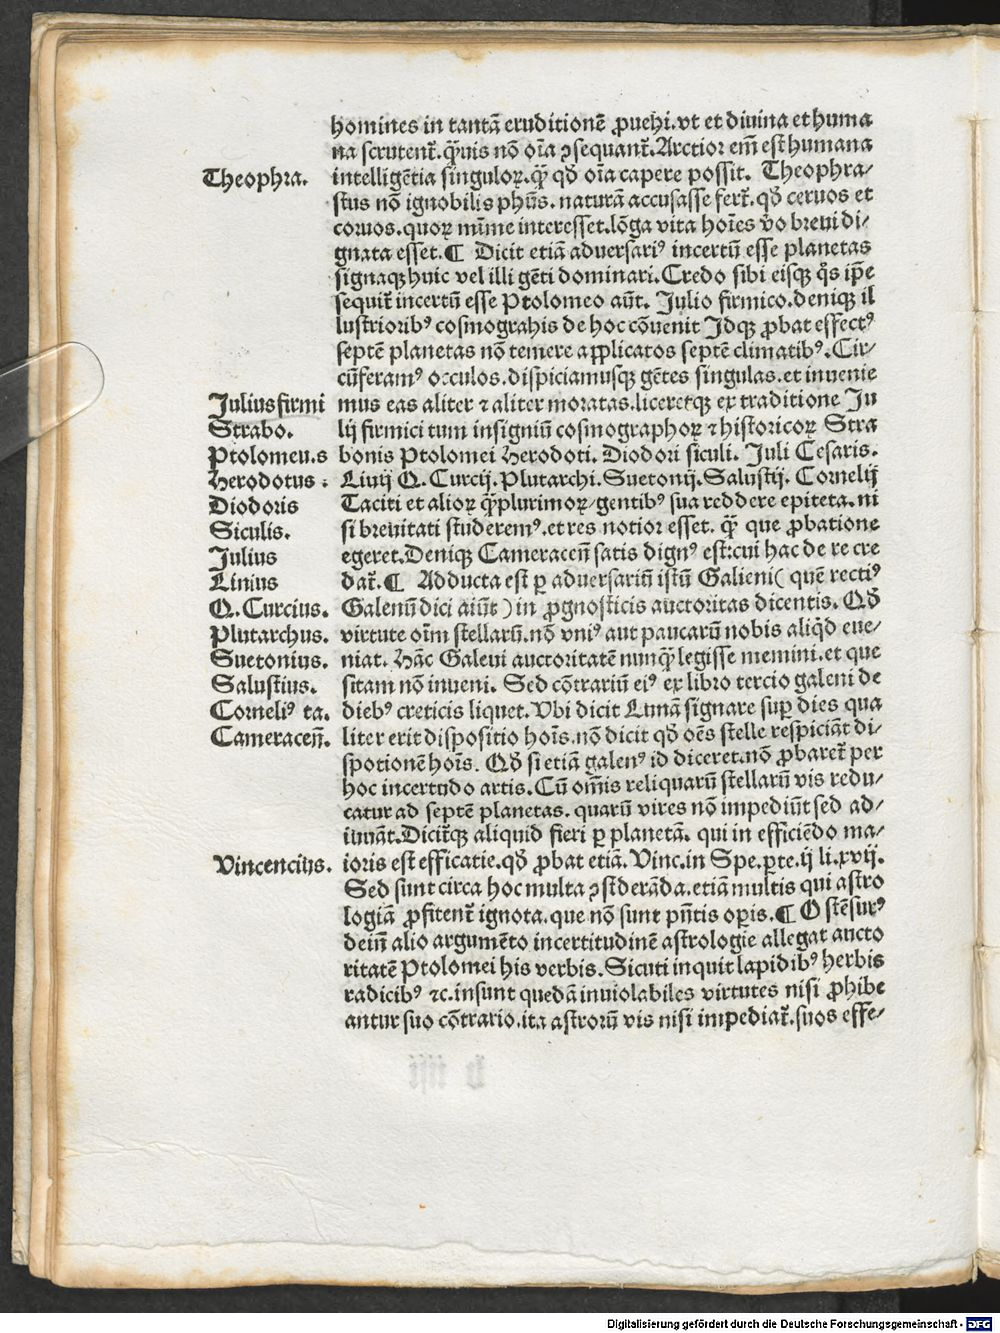 homines in tantā eruditionē ꝓuehi.vt et diuina et huma
na scrutent᷑.qᷓuis nō oīa ꝯsequant᷑.Arctior em̄ est humana
Theophra.
intelligētia singuloꝝ.qᷓ qđ oīa capere possit. Theophra⸗
stus nō ignobilis phūs. naturā accusasse fert᷑. qđ ceruos et
coruos.quoꝝ mīme interesset.lōga vita hoīes v̄o breui di⸗
gnata esset.¶ Dicit etiā aduersariꝰ incertū esse planetas
signaqꝫ huic vel illi gēti dominari.Credo sibi eisqꝫ q̊s ip̄e
sequit᷑ incertū esse Ptolomeo aūt. Julio firmico.deniqꝫ il
lustrioribꝰ cosmograhis de hoc cōuenit Jdqꝫ ꝓbat effectꝰ
septē planetas nō temere applicatos septē climatibꝰ.Cir⸗
cūferamꝰ occulos.dispiciamusqꝫ gētes singulas.et inuenie
Julius firmi
mus eas aliter ⁊ aliter moratas.liceretqꝫ ex traditione Ju
Strabo.
lij firmici tum insigniū cosmographoꝝ ⁊ historicoꝝ Stra
Ptolomeu.s
bonis Ptolomei Herodoti. Diodori siculi. Juli Cesaris.
Herodotus :
Liuij Q. Curcij. Plutarchi. Suetonij. Salustij. Cornelij
Diodoris
Taciti et alioꝝ qᷓplurimoꝝ/gentibꝰ sua reddere epiteta. ni
Siculis.
si breuitati studeremꝰ.et res notior esset. qᷓ que ꝓbatione
Julius
egeret.Deniqꝫ Cameraceñ satis dignꝰ est:cui hac de re cre
Liuius
dat᷑.¶ Adducta est ꝑ aduersariū istū Galieni( quē rectiꝰ
Q. Curcius.
Galenū dici aiūt ) in ꝓgnosticis auctoritas dicentis. Qđ
Plutarchus.
virtute oīm stellarū.nō vniꝰ aut paucarū nobis aliq̇d eue⸗
Suetonius.
niat. Hāc Galeui auctoritatē nunqᷓ legisse memini.et que
Salustius.
sitam nō inueni. Sed cōtrariū eiꝰ ex libro tercio galeni de
Corneliꝰ ta.
diebꝰ creticis liquet.Vbi dicit Lunā signare suꝑ dies qua
Cameraceñ.
liter erit dispositio hoīs.nō dicit qđ oēs stelle respiciāt di⸗
spotionē hoīs. Qđ si etiā galenꝰ id diceret.nō ꝓbaret᷑ per
hoc incertudo artis.Cū omīs reliquarū stellarū vis redu⸗
catur ad septē planetas. quarū vires nō impediūt sed ad⸗
iuuāt.Dicit᷑qꝫ aliquid fieri ꝑ planetā. qui in efficiēdo ma⸗
Vincencius.
ioris est efficatie.qđ ꝓbat etiā.Vinc.in Spe.ꝑte.ij li.xvij.
Sed sunt circa hoc multa ꝯsiderāda.etiā multis qui astro
logiā ꝓfitent᷑ ignota.que nō sunt pn̄tis oꝑis.¶ Ostēsurꝰ
dein̄ alio argumēto incertitudinē astrologie allegat aucto
ritatē Ptolomei his verbis.Sicuti inquit lapidibꝰ herbis
radicibꝰ ⁊c.insunt quedā inuiolabiles virtutes nisi ꝓhibe
antur suo cōtrario.ita astrorū vis nisi impediat᷑.suos effe⸗
Digitalisierung gefördert durch die Deutsche Forschungsgemeinschaft - DFG